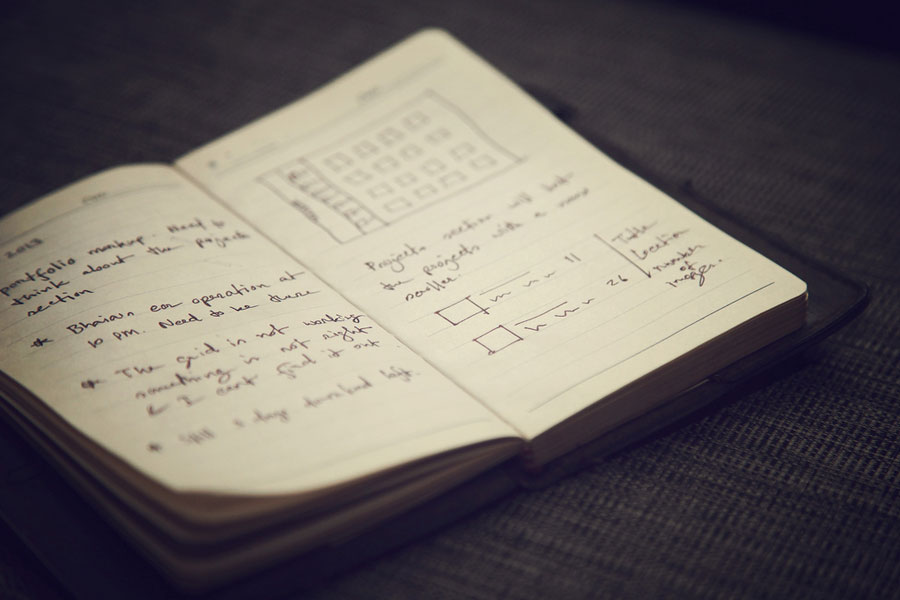 2013
portfolio markup. Need to
think about the project
section
* Bhaiya's ear operation at
10 pm. Need to be there
* The grid is not working
something is not right
& I can't find it out.
* Still 2 days left.
Projects section will
the projects with a
scroller.
11
26
Title
Location
number
of
images.